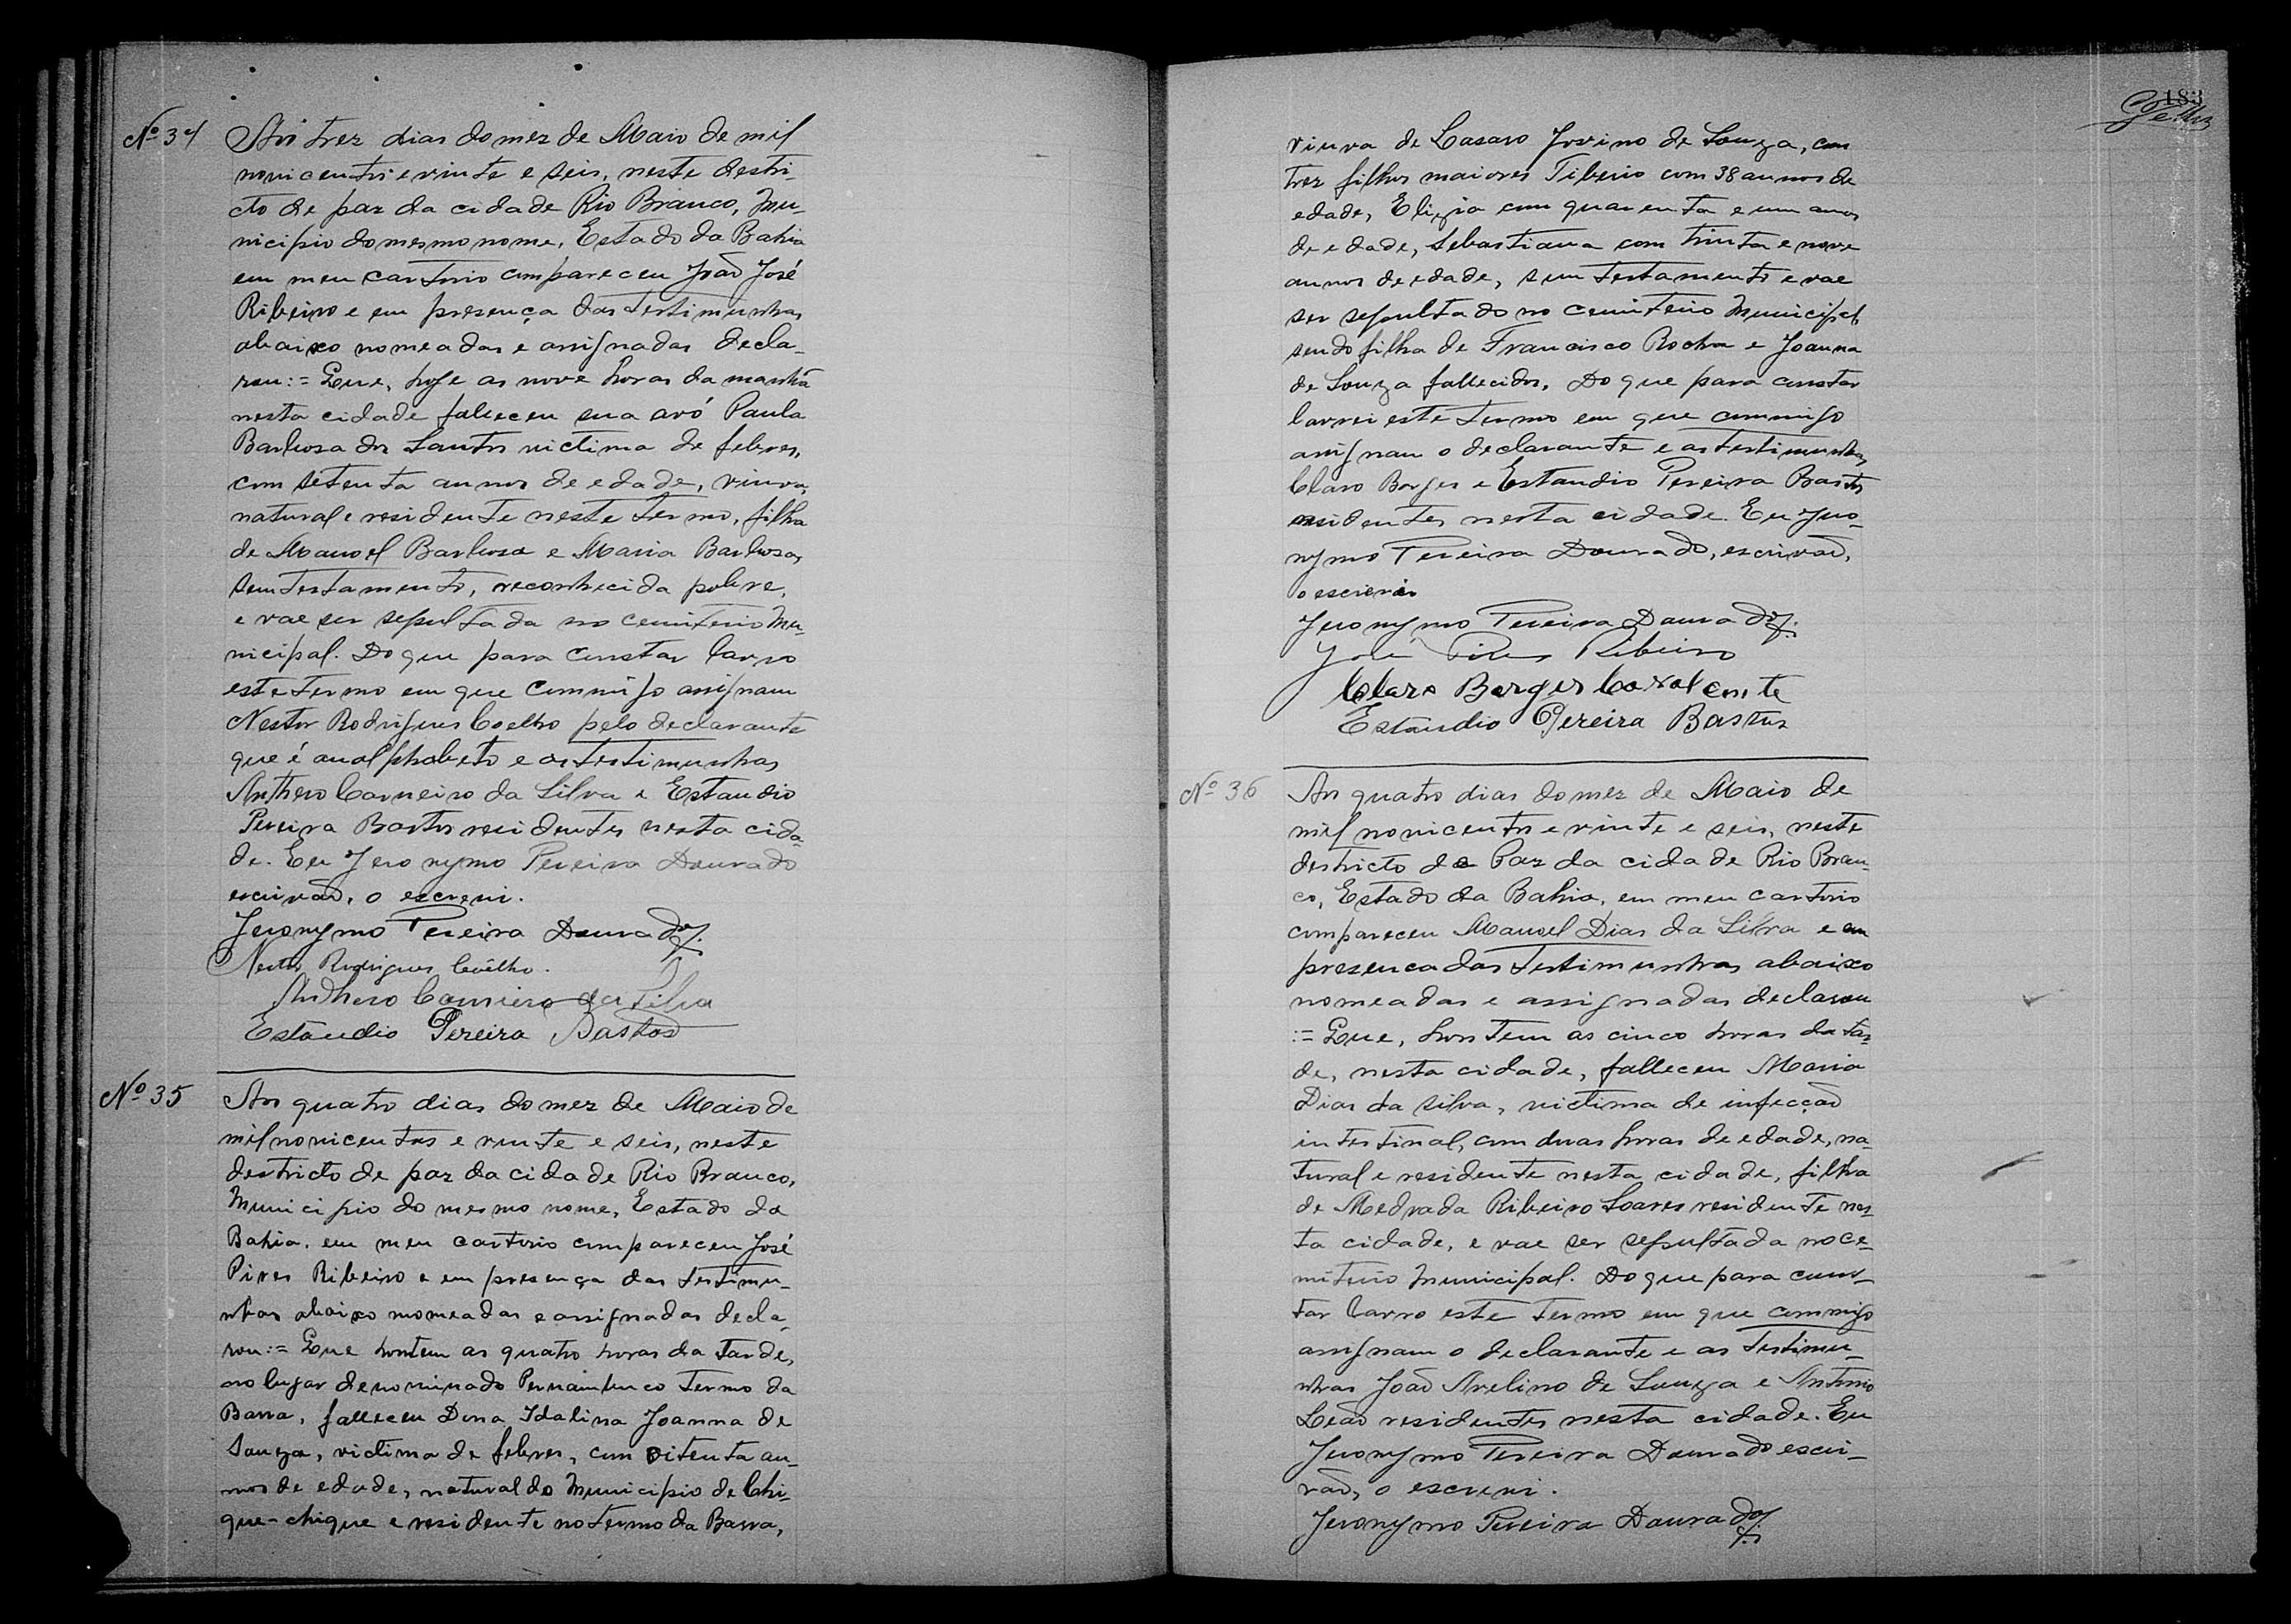 Nº 34
Aos trez dias do mez de Maio de mil
novicentos e vinte e seis, neste destri-
cto de paz da cidade Rio Branco, Mu-
nicipio do mesmo nome, Estado da Bahia
em meu cartorio compareceu João José
Ribeiro e em presença das testimunhas
abaixo nomeadas e assignadas decla-
rou:= Que, hoje as nove horas da manhã
nesta cidade falleceu sua avó Paula
Barbosa dos Santos victima de febres,
com setenta annos de edade, viuva,
natural e residente neste termo, filha
de Manoel Barbosa e Maria Barbosa,
sem testamento, reconhecida pobre,
e vae ser sepultada no cemiterio Mu-
nicipal. Do que para constar lavro
este termo em que commigo assignam
Nestor Rodrigues Coelho pelo declarante
que é analphabeto e as testimunhas
Anthero Carneiro da Silva e Estaudio
Pereira Bastos residentes nesta cida-
de. Eu Jeronymo Pereira Dourado
escrivão, o escrevi.
Jeronymo Pereira Dourado
Nestor Rodrigues Coêlho.
Anthero Carneiro da Silva
Estaudio Pereira Bastos
Nº 35
Aos quatro dias do mez de Maio de
mil novicentos e vinte e seis, neste
destricto de paz da cidade Rio Branco,
Municipio do mesmo nome, Estado da
Bahia, em meu cartorio compareceu José
Pires Ribeiro e em presença das testimu-
nhas abaixo nomeadas e assignadas decla-
rou:= Que hontem as quatro horas da tarde,
no lugar denominado Pernambuco termo da
Barra, falleceu Dona Idalina Joanna de
Souza, victima de febres, com oitenta an-
nos de edade, natural do Municipio de Chi-
que-chique e residente no termo da Barra,
183
viuva de Casaro Jovino de Souza, com
trez filhos maiores Tiberio com 38 annos de
edade, Eligia com quarenta e um annos
de edade, Sebastiana com trinta e nove
annos de edade, sem testamento e vae
ser sepultado no cemiterio Municipal
sendo filha de Francisco Rocha e Joanna
de Souza fallecidos. Do que para constar
lavrei este termo em que commigo
assignam o declarante e as testimunhas
Claro Borges e Estaudio Pereira Bastos
residentes nesta cidade. Eu Jero-
nymo Pereira Dourado, escrivão,
o escrevi
Jeronymo Pereira Dourado
José Pires Ribeiro
Claro Borges Cavalcante
Estaudio Pereira Bastos
Nº 36
Aos quatro dias do mez de Maio de
mil novicentos e vinte e seis, neste
destricto de Paz da cidade Rio Bran-
co, Estado da Bahia, em meu cartorio
compareceu Manoel Dias da Silva e em
presenca das testimunhas abaixo
nomeadas e assignadas declarou
:= Que, hontem as cinco horas da tar-
de, nesta cidade, falleceu Maria
Dias da Silva, victima de infecção
intestinal, com duas horas de edade, na-
tural e residente nesta cidade, filha
de Medrada Ribeiro Soares residente nes-
ta cidade, e vae ser sepultada no ce-
miterio Municipal. Do que para cons-
tar lavro este termo em que commigo
assignam o declarante e as testimu-
nhas João Avelino de Souza e Antonio
Leão residentes nesta cidade. Eu
Jeronymo Pereira Dourado escri-
vão, o escrevi.
Jeronymo Pereira Dourado